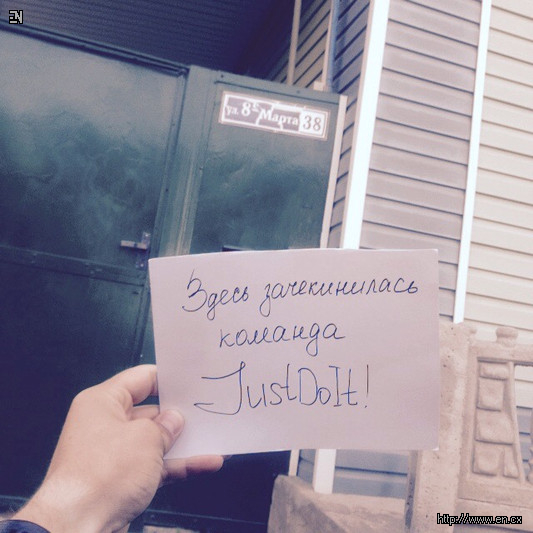 EN
ул. 8е Марта 38
Здесь зачекинилась
команда
JustDoIt!
http://www.en.cx